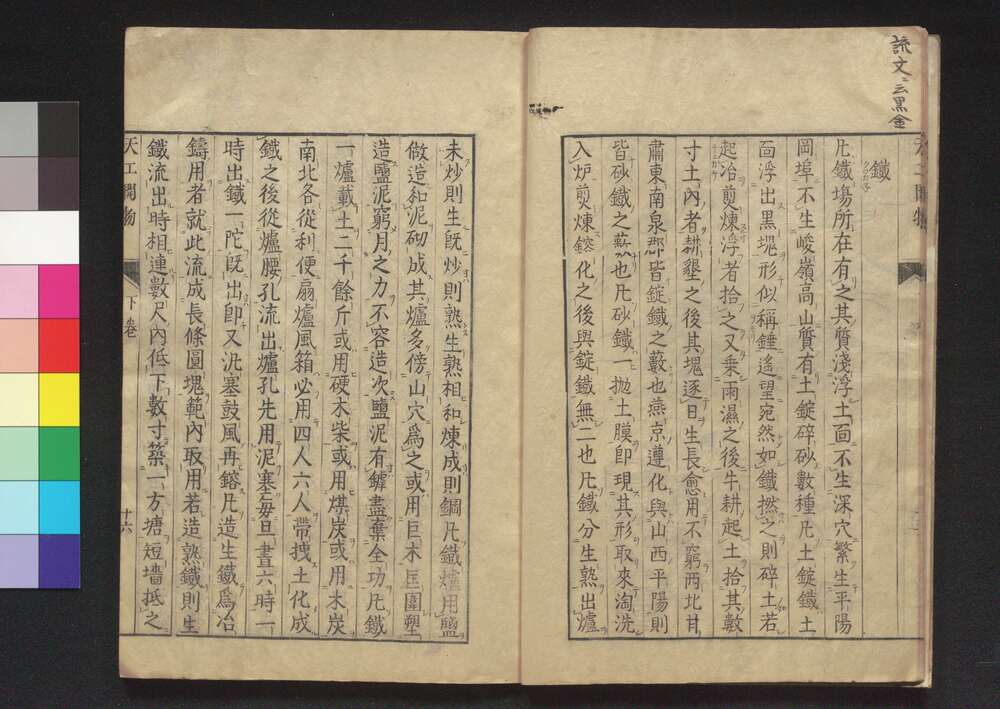 説文云黒金
鐵
凡鐵塲所在有之其質淺浮土面不生深穴繁生平陽
岡埠不生峻嶺高山質有土錠碎砂數種凡土錠鐵土
面浮出黒塊形似稱錘遙望宛然如鐵撚之則碎土若
起冶煎煉浮者拾之又乗雨濕之後牛耕起土拾其數
寸土內者耕墾之後其塊逐日生長愈用不窮西北甘
肅東南泉郡皆錠鐵之藪也燕京遵化與山西平陽則
皆砂鐵之藪也凡砂鐵一抛土膜卽現其形取來淘洗
入炉煎煉鎔化之後與錠鐵無二也凡鐵分生熟出爐
未炒則生旣炒則熟生熟相和煉成則鋼凡鐵爐用鹽
做造和泥砌成其爐多傍山穴爲之或用巨木匡圍塑
造鹽泥窮月之力不容造次鹽泥有罅盡棄全功凡鐵
一爐載土二千餘斤或用硬木柴或用煤炭或用木炭
南北各從利便扇爐風箱必用四人六人帶拽土化成
鐵之後從爐腰孔流出爐孔先用泥塞毎旦晝六時一
時出鐵一陀旣出卽又泥塞鼓風再鎔凡造生鐵爲冶
鑄用者就此流成長條圓塊範內取用若造熟鐵則生
鐵流出時相連數尺內低下數寸築一方塘短墻抵之
天工開物
下卷
十六